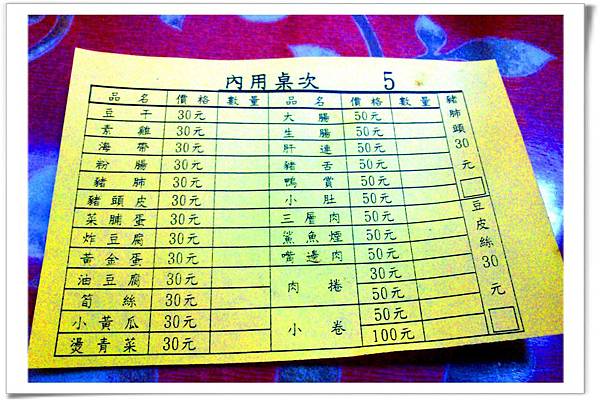 內用桌次 5
品名 價格 數量 品名 價格 數量
豆干 30元 大腸 50元
素雞 30元 生腸 50元
海帶 30元 肝連 50元
粉腸 30元 豬舌 50元
豬肺 30元 鴨賞 50元
豬頭皮 30元 小肚 50元
菜脯蛋 30元 三層肉 50元
炸豆腐 30元 鯊魚煙 50元
黃金蛋 30元 嘴邊肉 50元
油豆腐 30元 肉捲 30元
筍絲 30元 50元
小黃瓜 30元 小卷 50元
燙青菜 30元 100元
豬肺頭30元
豆皮絲30元